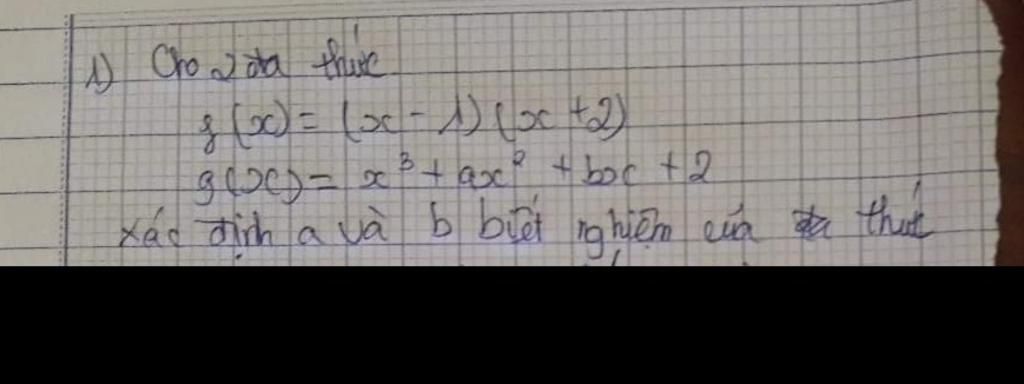 1) Cho 2 đa thức
f(x) = (x - 1)(x + 2)
g(x) = x³ + ax² + bx + 2
xác định a và b biết nghiệm của đa thức